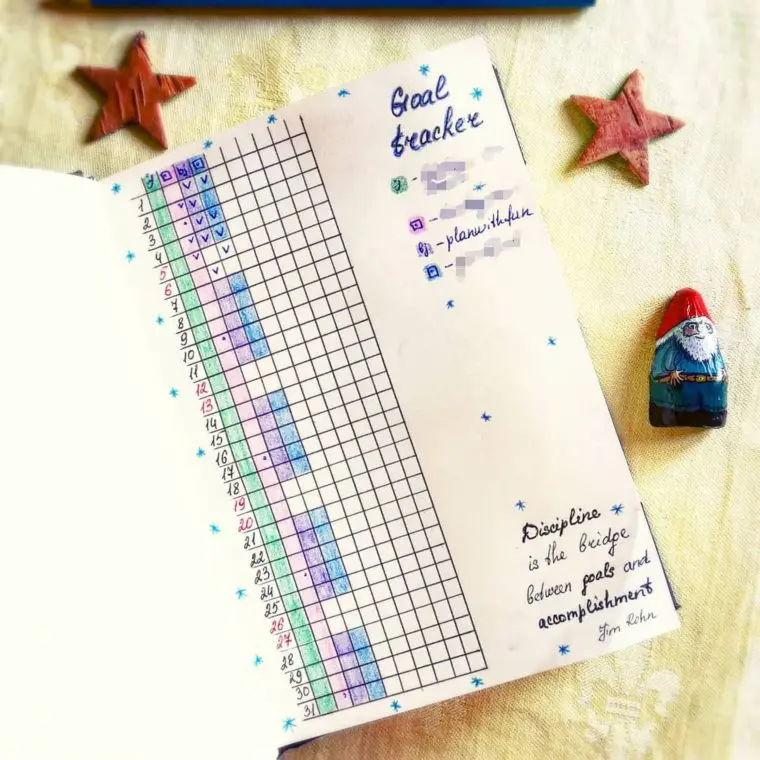 Goal
tracker
1
2
3
4
5
6
7
8
9
10
11
12
13
14
15
16
17
18
19
20
21
22
23
24
25
26
27
28
29
30
31
- planwithfun
Discipline
is the bridge
between goals and
accomplishment
Jim Rohn